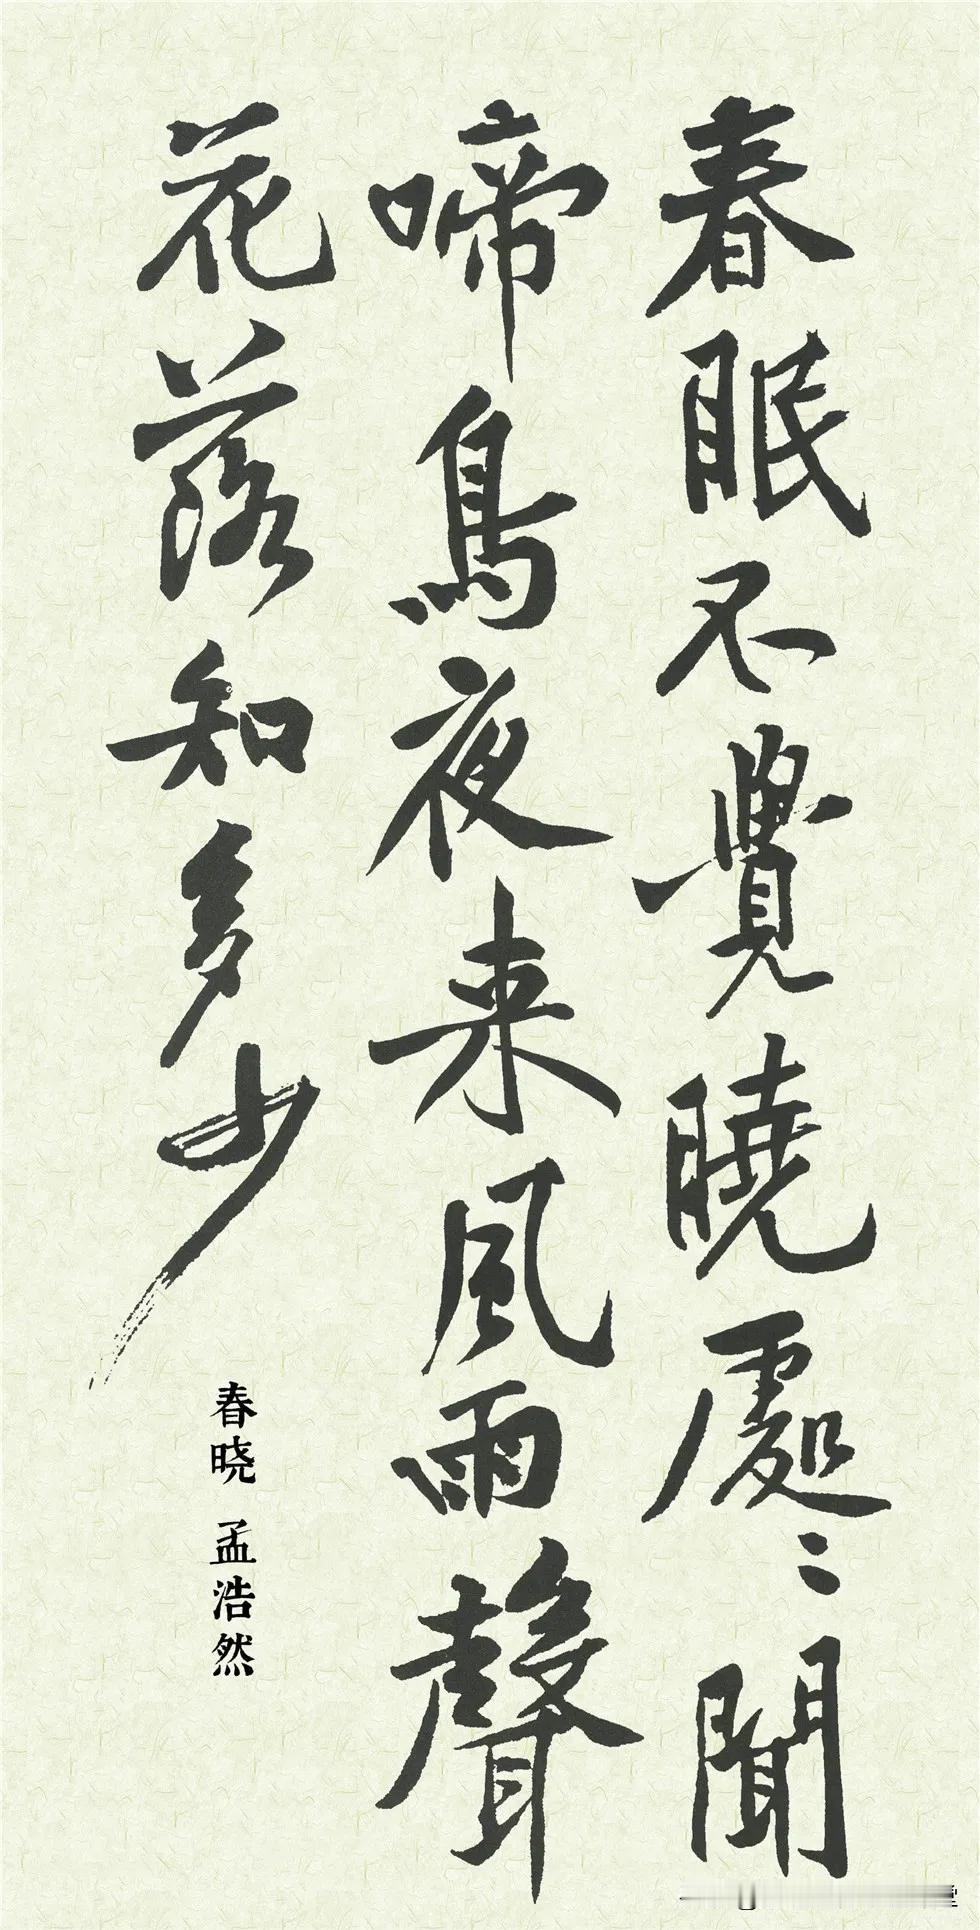 春眠不覺曉處〻聞
啼鳥夜来風雨聲
花落知多少
春晓 孟浩然